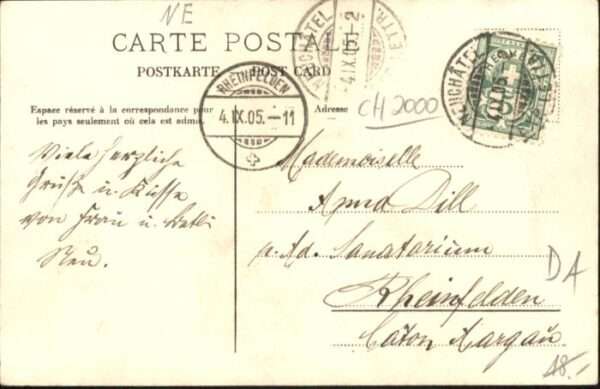 NE
CARTE POSTALE
POSTKARTE POST CARD
Espace réservé à la correspondance pour
les pays seulement où cela est admis.
Adresse
NEUCHÂTEL
4.IX.05.-2
LETTR.
RHEINFELDEN
4.IX.05.-11
CH 2000
NEUCHÂTEL
Viele herzliche
Grüße u. Küsse
von Frau u.
Neu.
Mademoiselle
Anna Dill
p. Ad. Sanatorium
Rheinfelden
Caton Aargau.
DA
18.-